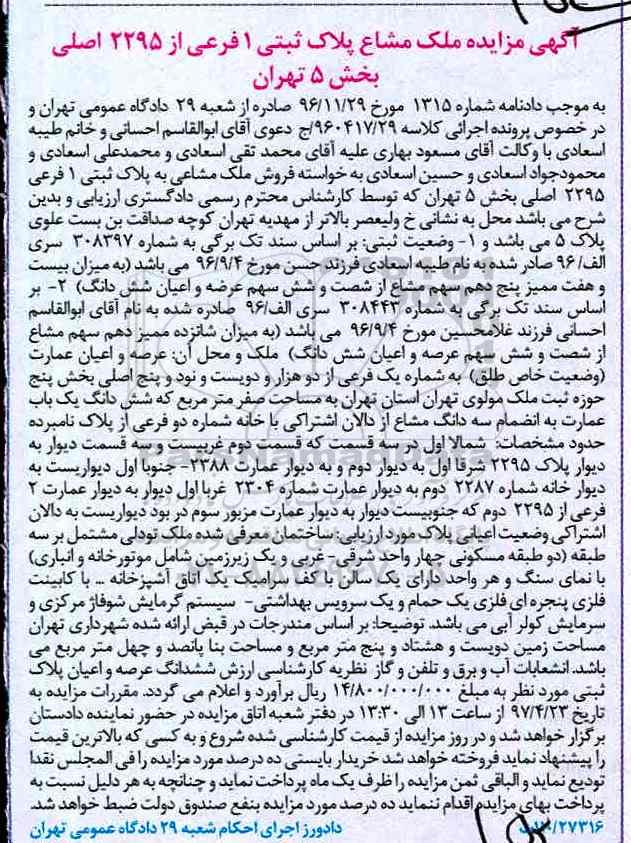 آگهی مزایده ملک مشاع پلاک ثبتی ۱ فرعی از ۲۲۹۵ اصلی
بخش ۵ تهران
به موجب دادنامه شماره ۱۳۱۵ مورخ ۹۶/۱۱/۲۹ صادره از شعبه ۲۹ دادگاه عمومی تهران و
در خصوص پرونده اجرائی کلاسه ۹۶۰۴۱۷/۲۹/ج دعوی آقای ابوالقاسم احسانی و خانم طیبه
اسعادی با وکالت آقای مسعود بهاری علیه آقای محمد تقی اسعادی و محمدعلی اسعادی و
محمودجواد اسعادی و حسین اسعادی به خواسته فروش ملک مشاعی به پلاک ثبتی ۱ فرعی
۲۲۹۵ اصلی بخش ۵ تهران که توسط کارشناس محترم رسمی دادگستری ارزیابی و بدین
شرح می باشد محل به نشانی خ ولیعصر بالاتر از مهدیه تهران کوچه صداقت بن بست علوی
پلاک ۵ می باشد و ۱- وضعیت ثبتی: بر اساس سند تک برگی به شماره ۳۰۸۳۹۷ سری
الف/۹۶ صادر شده به نام طیبه اسعادی فرزند حسن مورخ ۹۶/۹/۴ می باشد (به میزان بیست
و هفت ممیز پنج دهم سهم مشاع از شصت و شش سهم عرضه و اعیان شش دانگ) ۲- بر
اساس سند تک برگی به شماره ۳۰۸۴۴۳ سری الف/۹۶ صادره شده به نام آقای ابوالقاسم
احسانی فرزند غلامحسین مورخ ۹۶/۹/۴ می باشد (به میزان شانزده ممیز دهم سهم مشاع
از شصت و شش سهم عرصه و اعیان شش دانگ) ملک و محل آن: عرصه و اعیان عمارت
(وضعیت خاص طلق) به شماره یک فرعی از دو هزار و دویست و نود و پنج اصلی بخش پنج
حوزه ثبت ملک مولوی تهران استان تهران به مساحت صفر متر مربع که شش دانگ یک باب
عمارت به انضمام سه دانگ مشاع از دالان اشتراکی با خانه شماره دو فرعی از پلاک نامبرده
حدود مشخصات: شمالا اول در سه قسمت که قسمت دوم غربیست و سه قسمت دیوار به
دیوار پلاک ۲۲۹۵ شرقا اول به دیوار دوم و به دیوار عمارت ۲۳۸۸- جنوبا اول دیواریست به
دیوار خانه شماره ۲۲۸۷ دوم به دیوار عمارت شماره ۲۳۰۴ غربا اول دیوار به دیوار عمارت ۲
فرعی از ۲۲۹۵ دوم که جنوبیست دیوار به دیوار عمارت مزبور سوم در بود دیواریست به دالان
اشتراکی وضعیت اعیانی پلاک مورد ارزیابی: ساختمان معرفی شده ملک تودلی مشتمل بر سه
طبقه (دو طبقه مسکونی چهار واحد شرقی- غربی و یک زیرزمین شامل موتورخانه و انباری)
با نمای سنگ و هر واحد دارای یک سالن با کف سرامیک یک اتاق آشپزخانه ... با کابینت
فلزی پنجره ای فلزی یک حمام و یک سرویس بهداشتی- سیستم گرمایش شوفاژ مرکزی و
سرمایش کولر آبی می باشد. توضیحا: بر اساس مندرجات در قبض ارائه شده شهرداری تهران
مساحت زمین دویست و هشتاد و پنج متر مربع و مساحت بنا پانصد و چهل متر مربع می
باشد. انشعابات آب و برق و تلفن و گاز نظریه کارشناسی ارزش ششدانگ عرصه و اعیان پلاک
ثبتی مورد نظر به مبلغ ۱۴/۸۰۰/۰۰۰/۰۰۰ ریال برآورد و اعلام می گردد. مقررات مزایده به
تاریخ ۹۷/۴/۲۳ از ساعت ۱۳ الی ۱۳:۳۰ در دفتر شعبه اتاق مزایده در حضور نماینده دادستان
برگزار خواهد شد و در روز مزایده از قیمت کارشناسی شده شروع و به کسی که بالاترین قیمت
را پیشنهاد نماید فروخته خواهد شد خریدار بایستی ده درصد مورد مزایده را فی المجلس نقدا
تودیع نماید و الباقی ثمن مزایده را ظرف یک ماه پرداخت نماید و چنانچه به هر دلیل نسبت به
پرداخت بهای مزایده اقدام ننماید ده درصد مورد مزایده بنفع صندوق دولت ضبط خواهد شد.
دادورز اجرای احکام شعبه ۲۹ دادگاه عمومی تهران